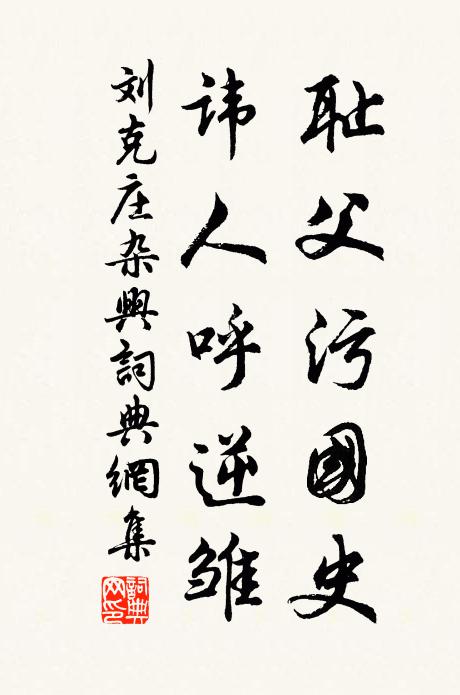 耻父污國史
讳人呼逆雏
刘克庄杂興詞典網集
詞典網印